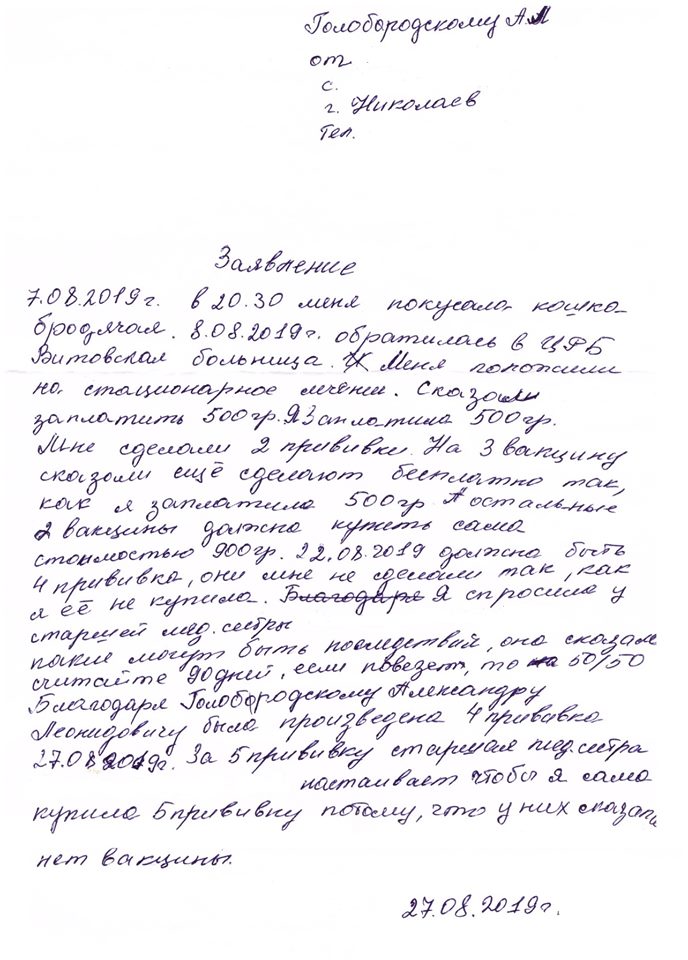 Голобородскому АЛ
от
с.
г. Николаев
Тел.
Заявление
7.08.2019г. в 20.30 меня покусала кошка
бродячая. 8.08.2019г. обратилась в ЦРБ
Витовская больница. Меня положили
на стационарное лечени. Сказали
заплатить 500гр. Я Заплатила 500гр.
Мне сделали 2 прививки. На 3 вакцину
сказали ещё сделают бесплатно так,
как я заплатила 500гр А остальные
2 вакцины должна купить сама
стоимостью 900гр. 22.08.2019 должна быть
4 прививка, они мне не сделали так, как
я её не купила. Благодаря Я спросила у
старшей мед. сестры
какие могут быть последствий, она сказала
считайте 90 дней, если повезет, то на 50/50
Благодаря Голобородскому Александру
Леонидовичу была произведена 4 прививка
27.08.2019г. За 5 прививку старшая медсестра
настаивает чтобы я сама
купила 5 прививку потому, что у них сказала
нет вакцины.
27.08.2019г.